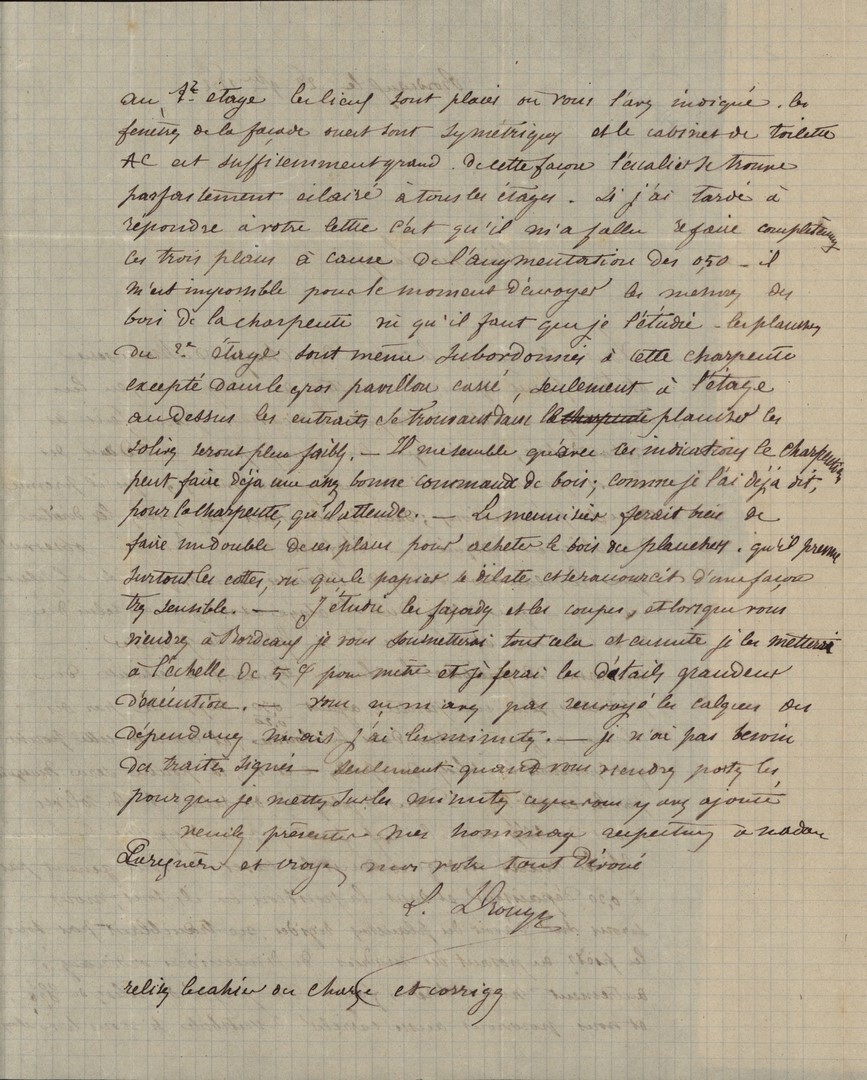 au 1er étage les lieux sont placés où vous l'avez indiqué. les
fenêtres de la façade ouest sont symétriques et le cabinet de toilette
AC est suffisemment grand. de cette façon l'escalier se trouve
parfaitement éclairé à tous les étages. Si j'ai tardé à
répondre à votre lettre c'est qu'il m'a fallu refaire complètement
ces trois plans à cause de l'augmentation des 0,50 – il
m'est impossible pour le moment d'envoyer les mesures des
bois de la charpente vu qu'il faut que je l'étudie – les planchers
du 2e étage sont même subordonnés à cette charpente
excepté dans le gros pavillon carré, seulement à l'étage
au dessus les entraits se trouvant dans la charpente plancher les
solives seront plus faibles. – Il me semble qu'avec ces indications le charpentier
peut faire déjà une assez bonne commande de bois; comme je l'ai déjà dit,
pour la charpente, qu'il attende. – Le menuisier ferait bien de
faire un double de ces plans pour acheter le bois des planchers. qu'il prenne
surtout les cottes, vu que le papier se dilate et se raccourcit d'une façon
très sensible. – J'étudie les façades et les coupes, et lorsque vous
viendrez à Bordeaux je vous soumetterai tout cela et ensuite je les metterai
à l'échelle de 5 c/ pour mètre et je ferai les détails grandeur
d'exécution. – vous ne m'avez pas renvoyé les calques des
dépendances mais j'ai les minutes. – je n'ai pas besoin
des traités signés – seulement quand vous viendrez portez les
pour que je mette sur les minutes ce que vous y avez ajouté
veuillez présenter mes hommages respectueux à madame
et croyez moi votre tout dévoué
L. Drouyn
relisez le cahier des charges et corrigez